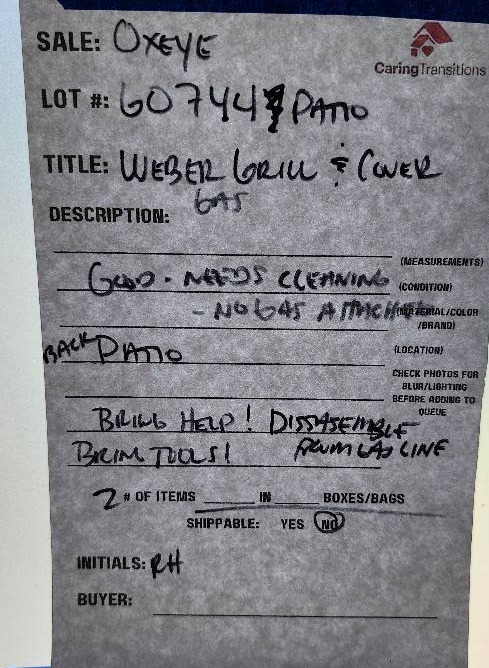 SALE: OXEYE
CaringTransitions
LOT #: 607447 PATIO
TITLE: WEBER GRILL & COVER
GAS
DESCRIPTION:
(MEASUREMENTS)
GOOD - NEEDS CLEANING (CONDITION)
- NO GAS ATTACHED (MATERIAL/COLOR
/BRAND)
BACK PATIO (LOCATION)
CHECK PHOTOS FOR
BLUR/LIGHTING
BEFORE ADDING TO
QUEUE
BRING HELP! DISSASEMBLE
BRING TOOLS! FROM GAS LINE
2 # OF ITEMS IN BOXES/BAGS
SHIPPABLE: YES NO
INITIALS: RH
BUYER: